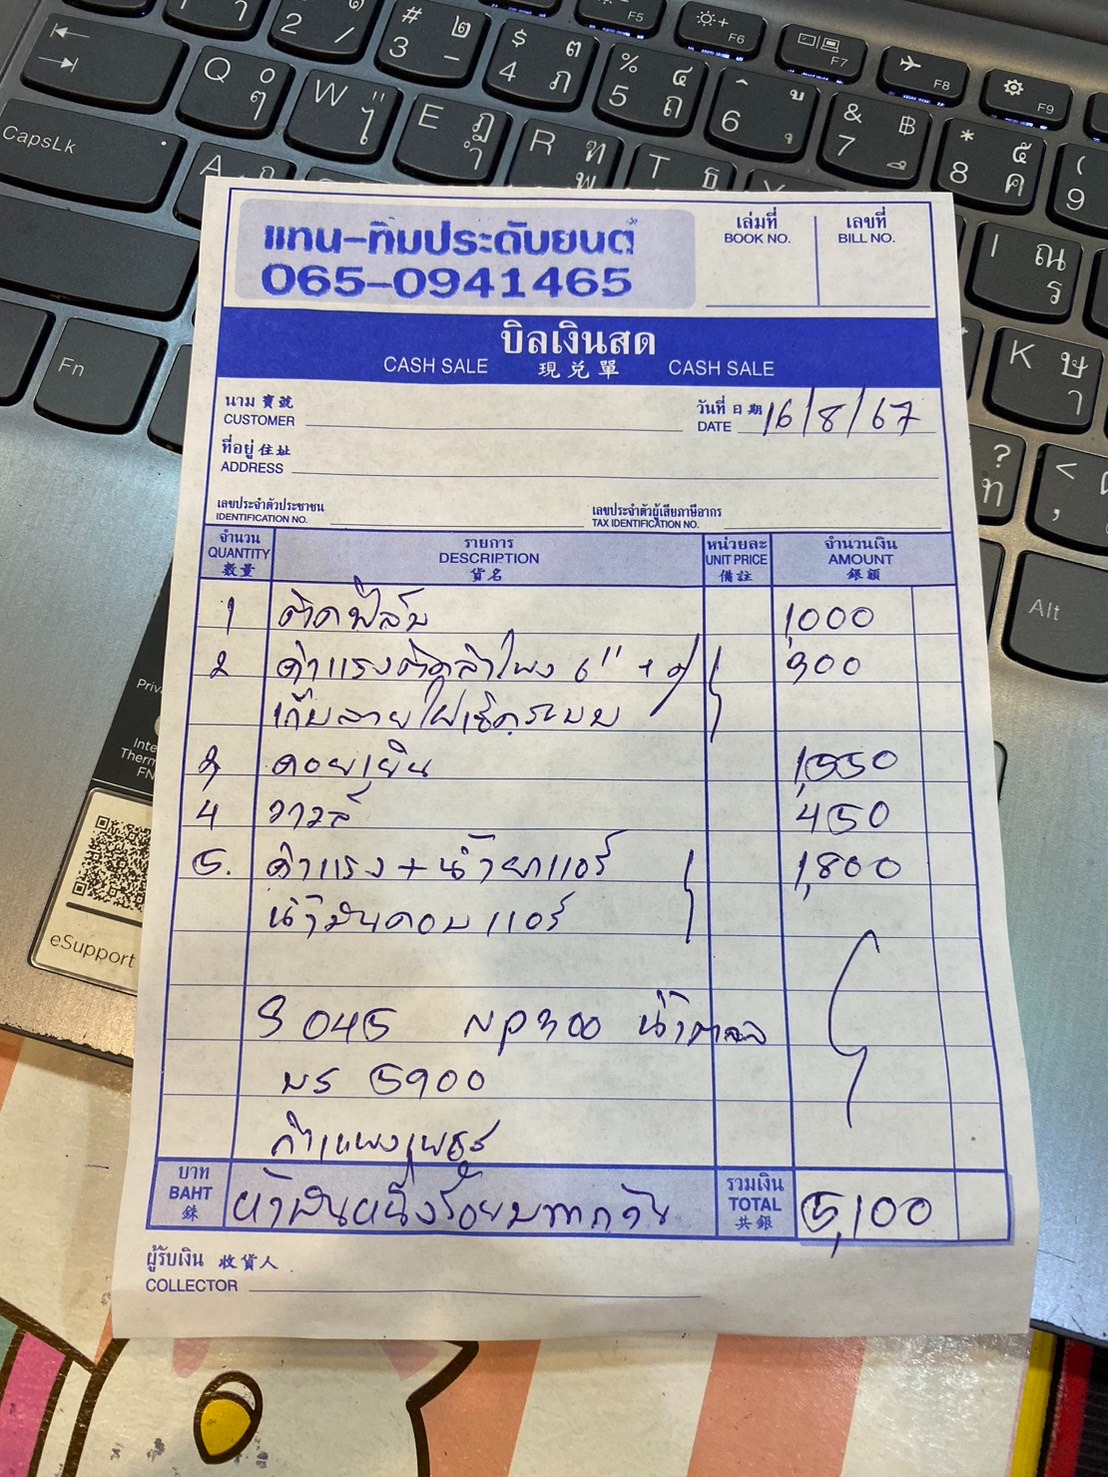 แทน-ทิมประดับยนต์
065-0941465
เล่มที่
BOOK NO.
เลขที่
BILL NO.
บิลเงินสด
CASH SALE 現兑單 CASH SALE
นาม 賣號
CUSTOMER
วันที่ 日期 16/8/67
DATE
ที่อยู่ 住址
ADDRESS
เลขประจำตัวประชาชน
IDENTIFICATION NO.
เลขประจำตัวผู้เสียภาษีอากร
TAX IDENTIFICATION NO.
จำนวน
QUANTITY
数量
รายการ
DESCRIPTION
貨名
หน่วยละ
UNIT PRICE
備註
จำนวนเงิน
AMOUNT
銀額
1 ติดฟิล์ม 1,000
2 ค่าแรงติดลำโพง 6" + 900
เก็บสายไฟเช็คระบบ
3 คอยเย็น
4 วาวล์ 450
5. ค่าแรง + น้ำยาแอร์ 1,800
น้ำมันคอมแอร์
045 NP300 น้ำตาล
บร 5900
กำแพงเพชร
บาท
BAHT
銖
ห้าพันหนึ่งร้อยบาทถ้วน
รวมเงิน
TOTAL
共銀
5,100
ผู้รับเงิน 收貨人
COLLECTOR
CapsLk
Fn
Alt
Q
W
E
R
T
A
K
F5
F6
F7
F8
F9
eSupport